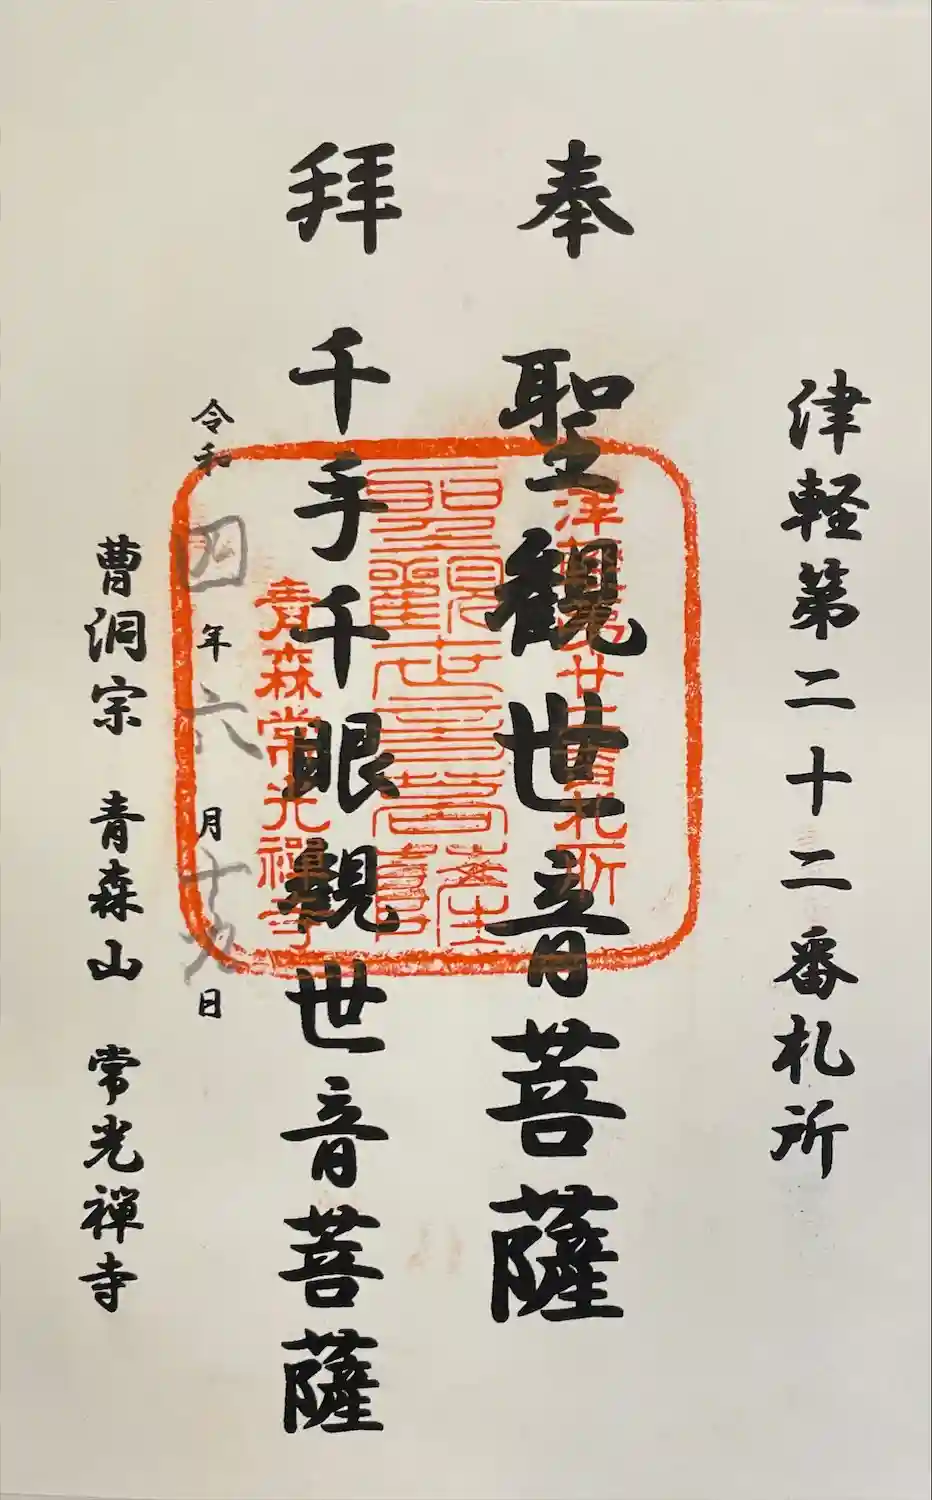 津軽第二十二番札所
奉 聖観世音菩薩
拝 千手千眼観世音菩薩
令和四年六月十九日
曹洞宗 青森山 常光禅寺
津軽第廿二番札所
聖観世音菩薩
青森常光禅寺